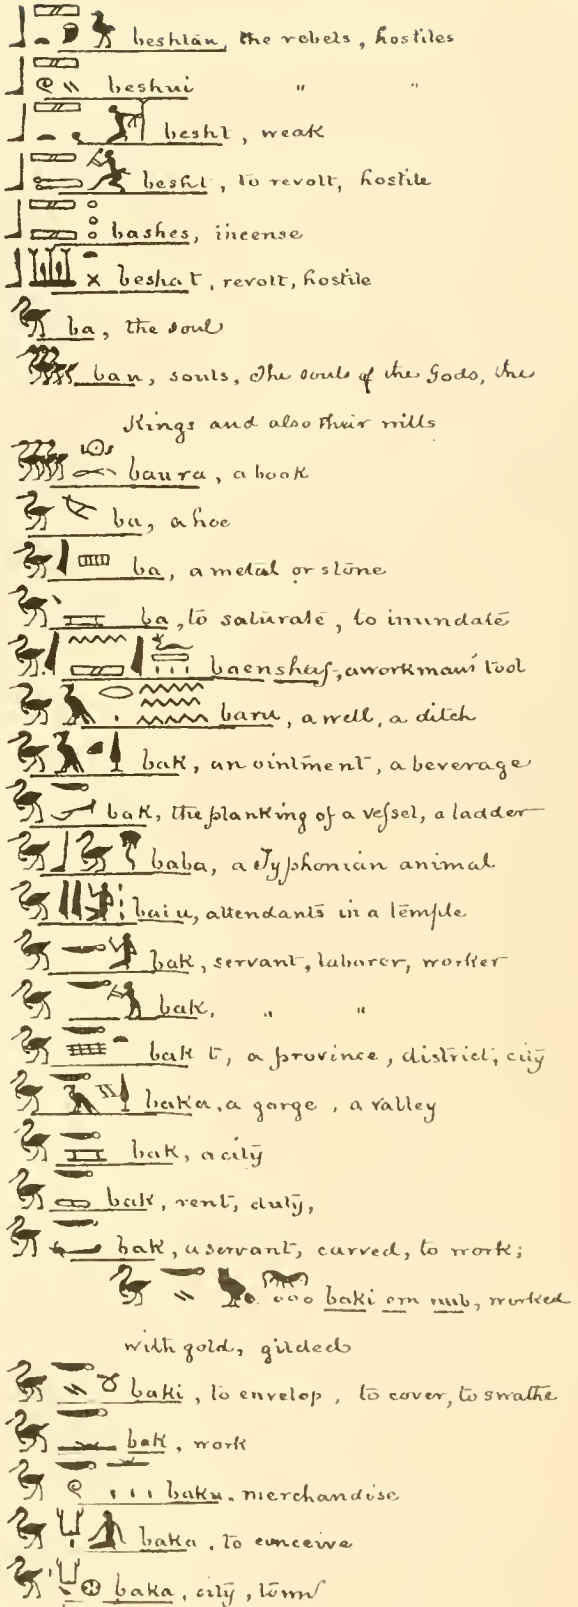 beshtau, the rebels, hostiles
beshui " "
besht, weak
besht, to revolt, hostile
bashes, incense
beshat, revolt, hostile
ba, the soul
bau, souls, The souls of the Gods, the
Kings and also their wills
baura, a book
ba, a hoe
ba, a metal or stone
ba, to saturate, to inundate
baenshaf, a workman's tool
baru, a well, a ditch
bak, an ointment, a beverage
bak, the planking of a vessel, a ladder
baba, a Typhonian animal
baiu, attendants in a temple
bak, servant, laborer, worker
bak, " "
bak t, a province, district, city
baka, a gorge, a valley
bak, a city
bak, rent, duty,
bak, a servant, carved, to work;
baki em nub, worked
with gold, gilded
baki, to envelop, to cover, to swathe
bak, work
baku. merchandise
baka, to conceive
baka, city, town